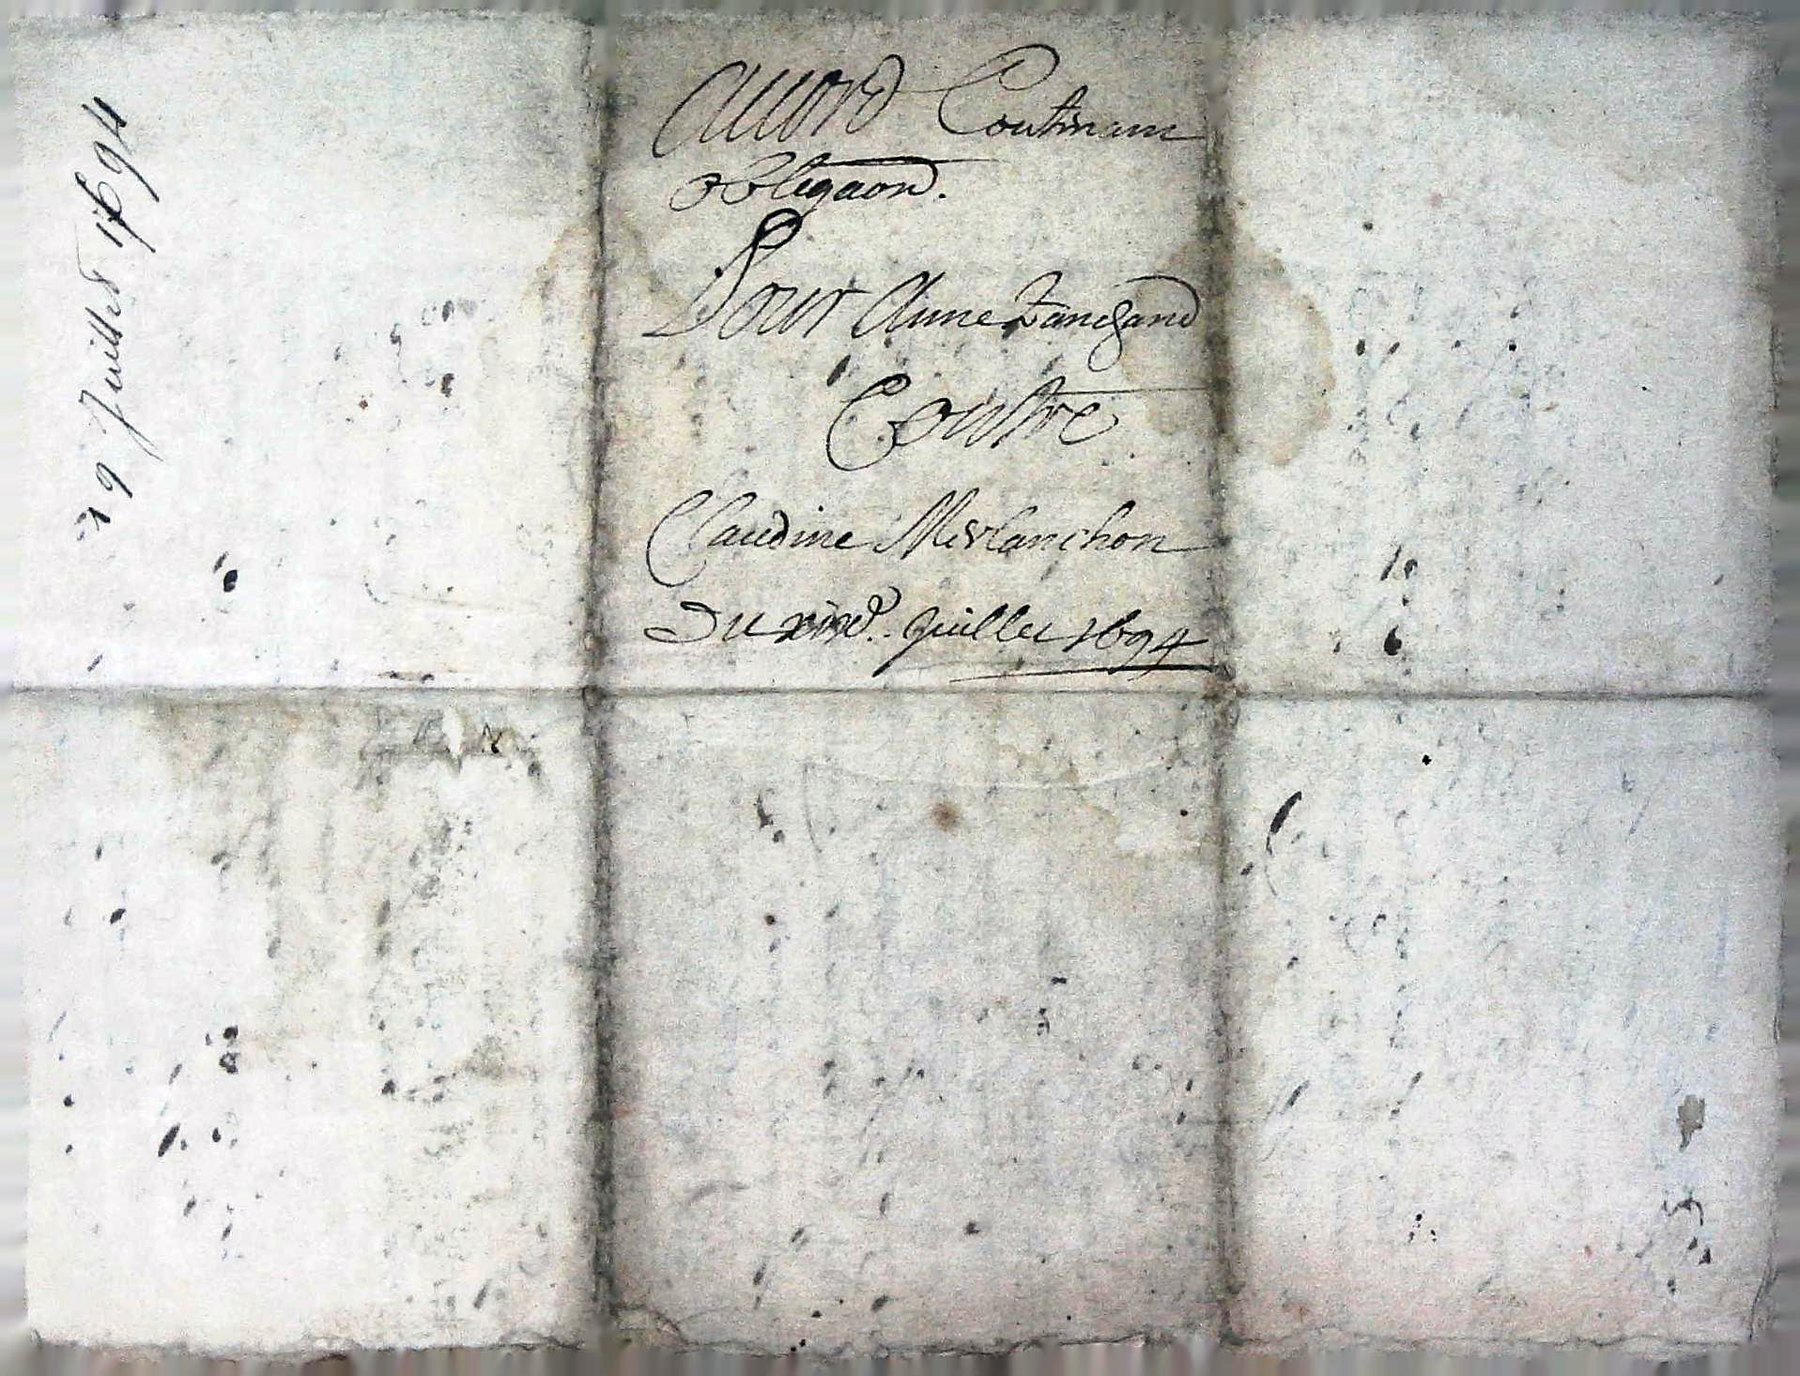 Accord Contenant
obligaon.
Pour Anne
Contre
Claudine Merlanchon
Du xixe. Juillet 1694
19 Juillet 1694